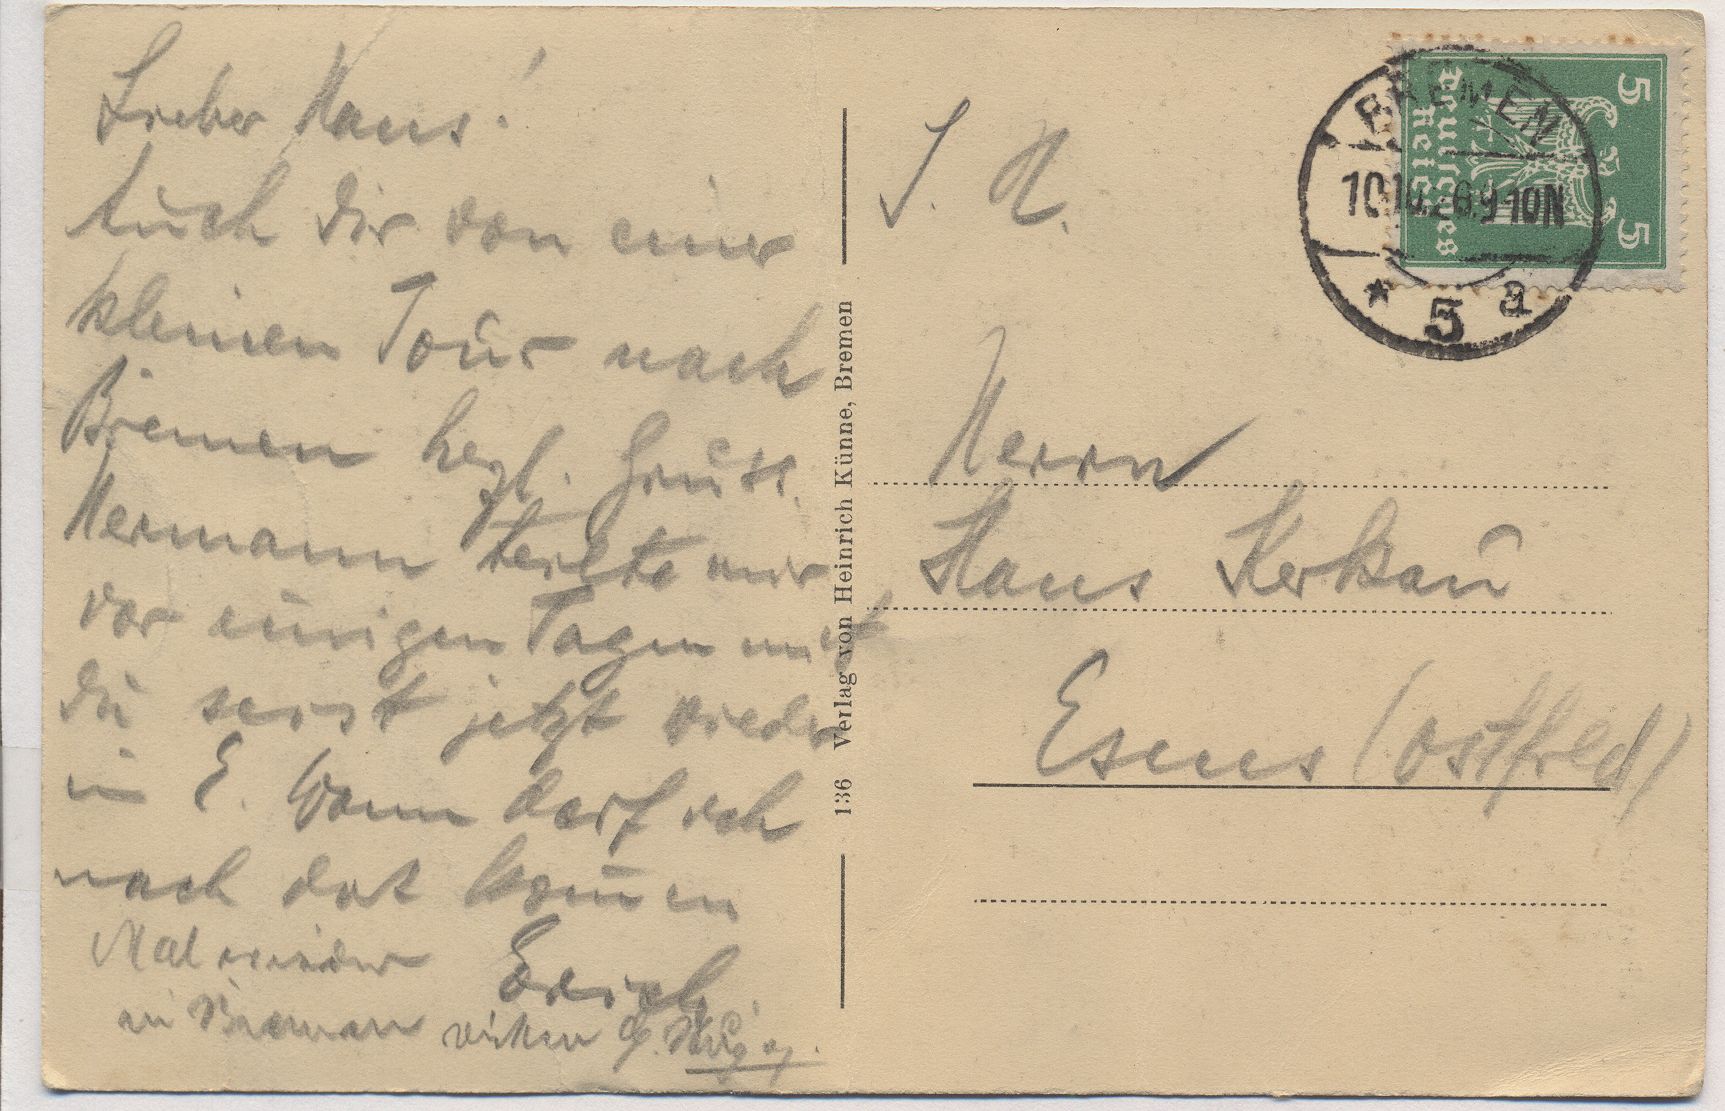 Lieber Hans!
Auch dir von einer
kleinen Tour nach
Bremen hezl. Gruss.
Hermann teilte mir
vor einigen Tagen mit
du seist jetzt wieder
in E. Wann darf ich
nach dort kommen
Erich
Mal wieder
in Bremen
136 Verlag von Heinrich Künne, Bremen
S. H.
Herrn
Hans Kerkau
Esens (Ostfrld)
BREMEN
10.10.26.9-10N
* 5 a
Deutsches
Reich
5 5